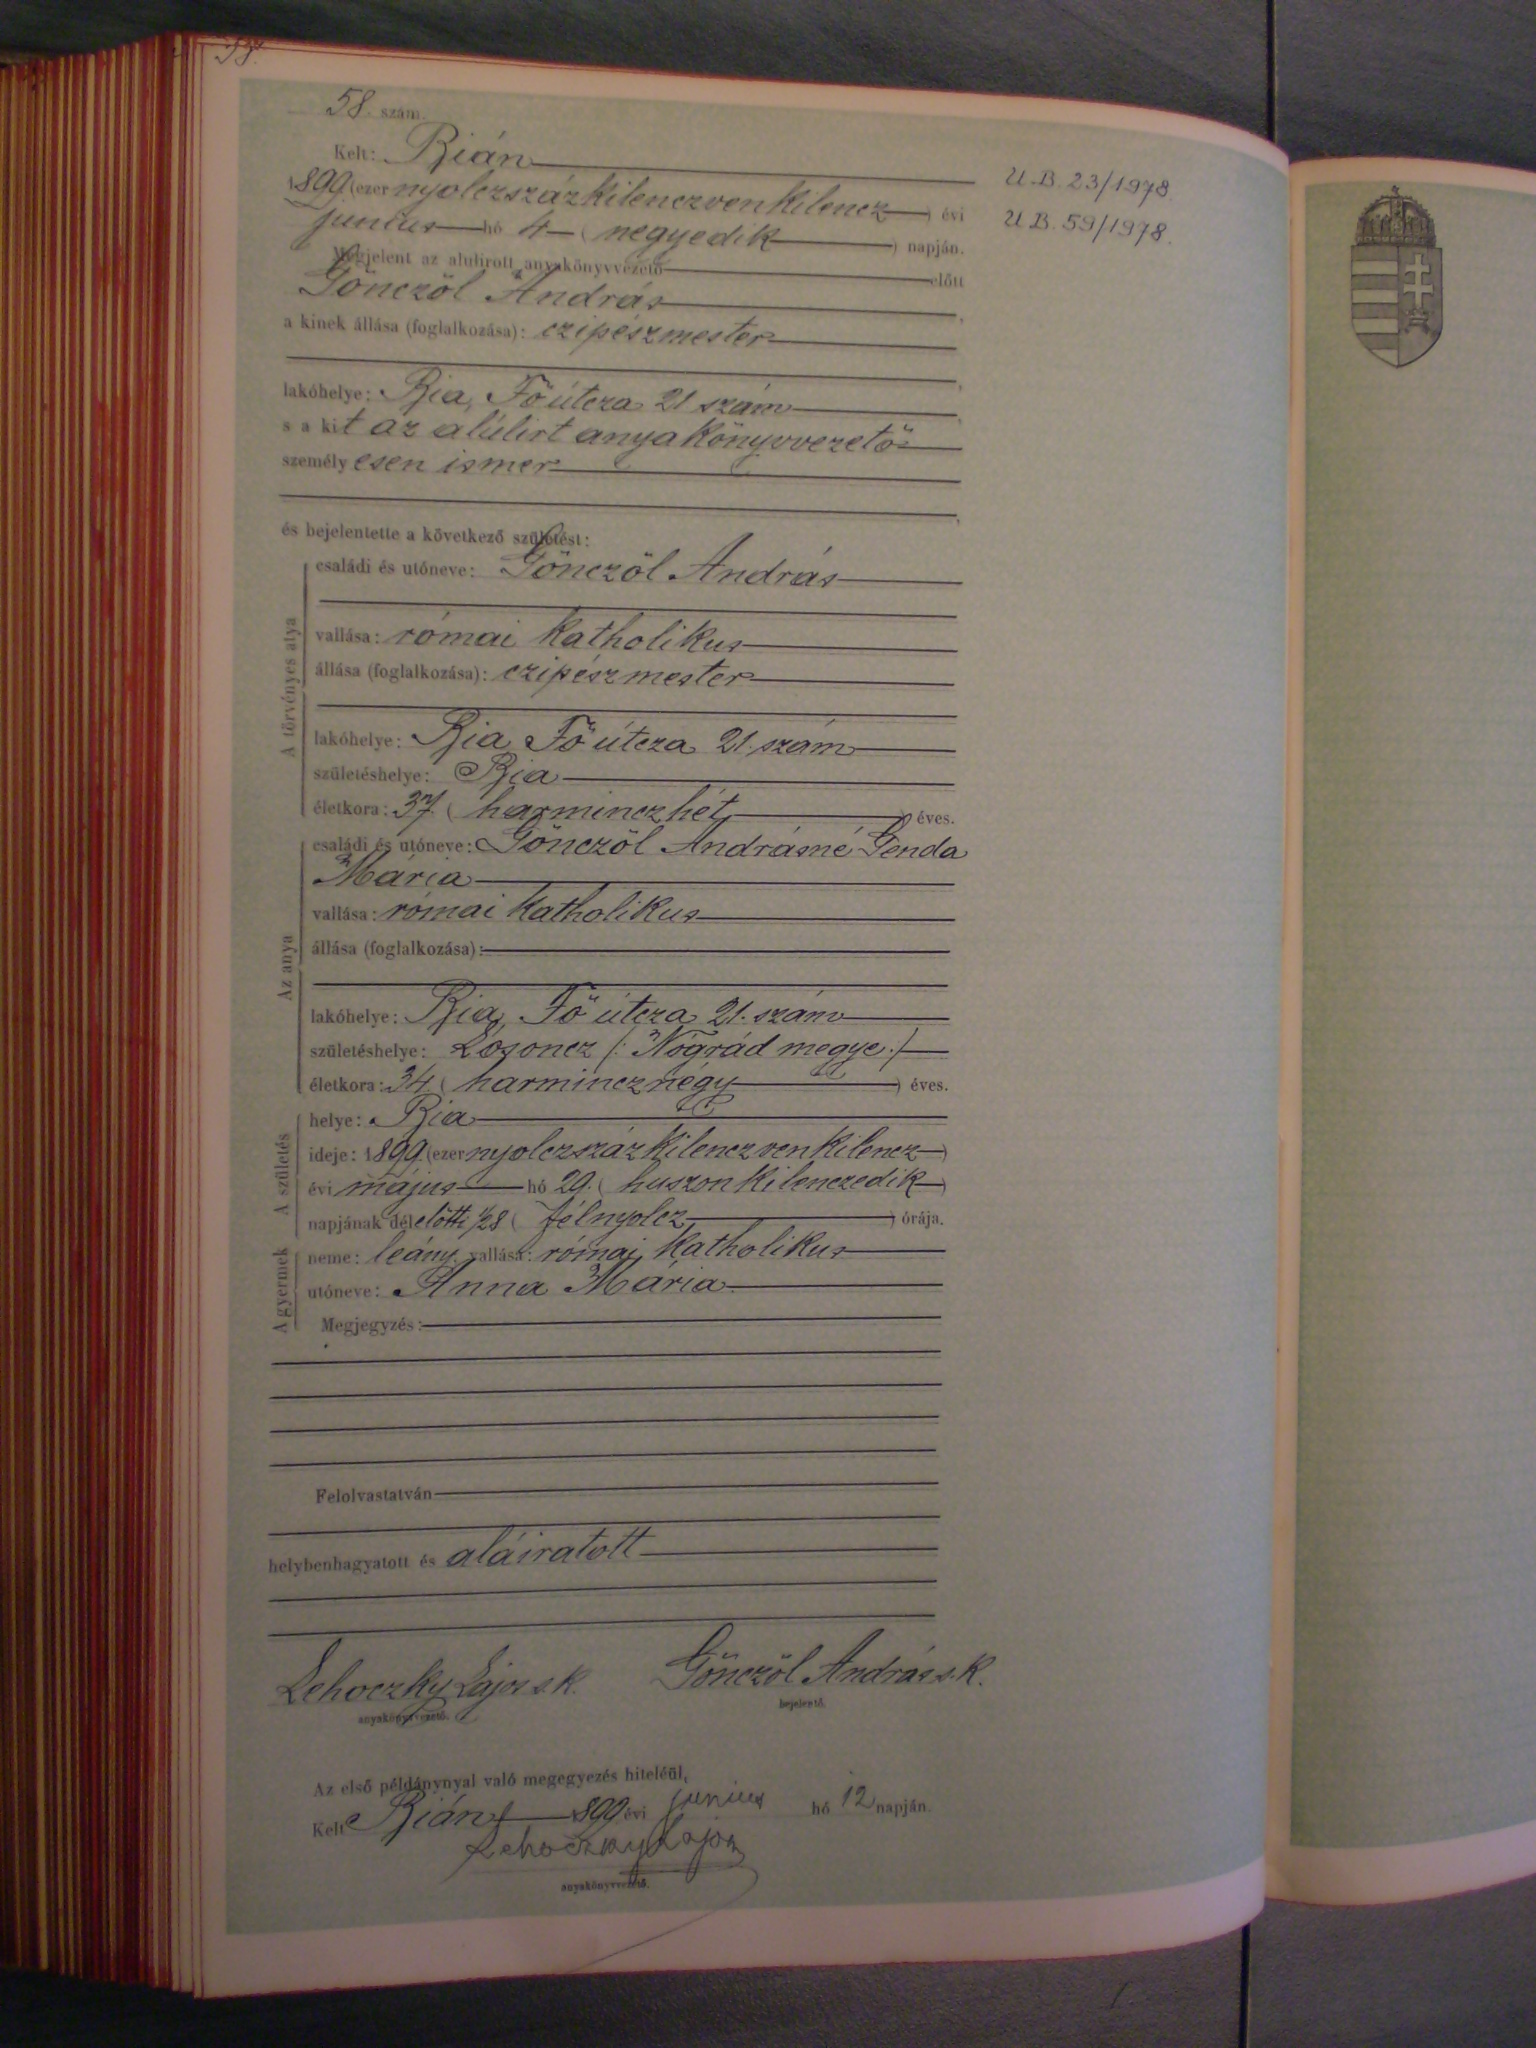 58.
58. szám.
Kelt: Bián
1899 (ezer nyolczszázkilenczvenkilencz) évi
junius hó 4 (negyedik) napján.
Megjelent az alulirott anyakönyvvezető előtt
Gönczöl András,
a kinek állása (foglalkozása): czipészmester
,
lakóhelye: Bia, Fő útcza 21 szám,
s a kit az alúlirt anyakönyvvezető
személyesen ismer
,
és bejelentette a következő születést:
A törvényes atya
családi és utóneve: Gönczöl András
vallása: római katholikus
állása (foglalkozása): czipészmester
lakóhelye: Bia, Fő útcza 21. szám
születéshelye: Bia
életkora: 37 (harminczhét) éves.
Az anya
családi és utóneve: Gönczöl Andrásné Genda
Mária
vallása: római katholikus
állása (foglalkozása):
lakóhelye: Bia, Fő útcza 21. szám
születéshelye: Losoncz (: Nógrád megye :)
életkora: 34 (harmincznégy) éves.
A születés
helye: Bia
ideje: 1899 (ezer nyolczszázkilenczvenkilencz)
évi május hó 29. (huszonkilenczedik)
napjának délelőtti 1/28 (félnyolcz) órája.
A gyermek
neme: leány vallása: római katholikus
utóneve: Anna Mária
Megjegyzés:
Felolvastatván
helybenhagyatott és aláiratott
Lehoczky Lajos s.k. Gönczöl András s.k.
anyakönyvvezető. bejelentő.
Az első példánynyal való megegyezés hiteléül,
Kelt Bián 1899 évi junius hó 12 napján.
Lehoczky Lajos
anyakönyvvezető.
U.B. 23/1978
U.B. 59/1978.